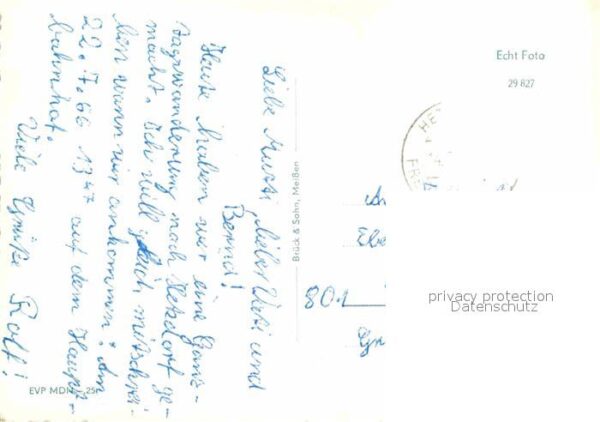 Liebe Mutti, lieber Vati und
Bernd!
Heute haben wir eine Ganz-
tagswanderung nach Hetzdorf ge-
macht. Ich will gleich mitschrei-
ben wann wir ankommen: Am
22.7.66 13⁴⁷ auf dem Haupt-
bahnhof.
Viele Grüße Rolf!
EVP MDN -,25
Brück & Sohn, Meißen
Echt Foto
29 827
801
privacy protection
Datenschutz